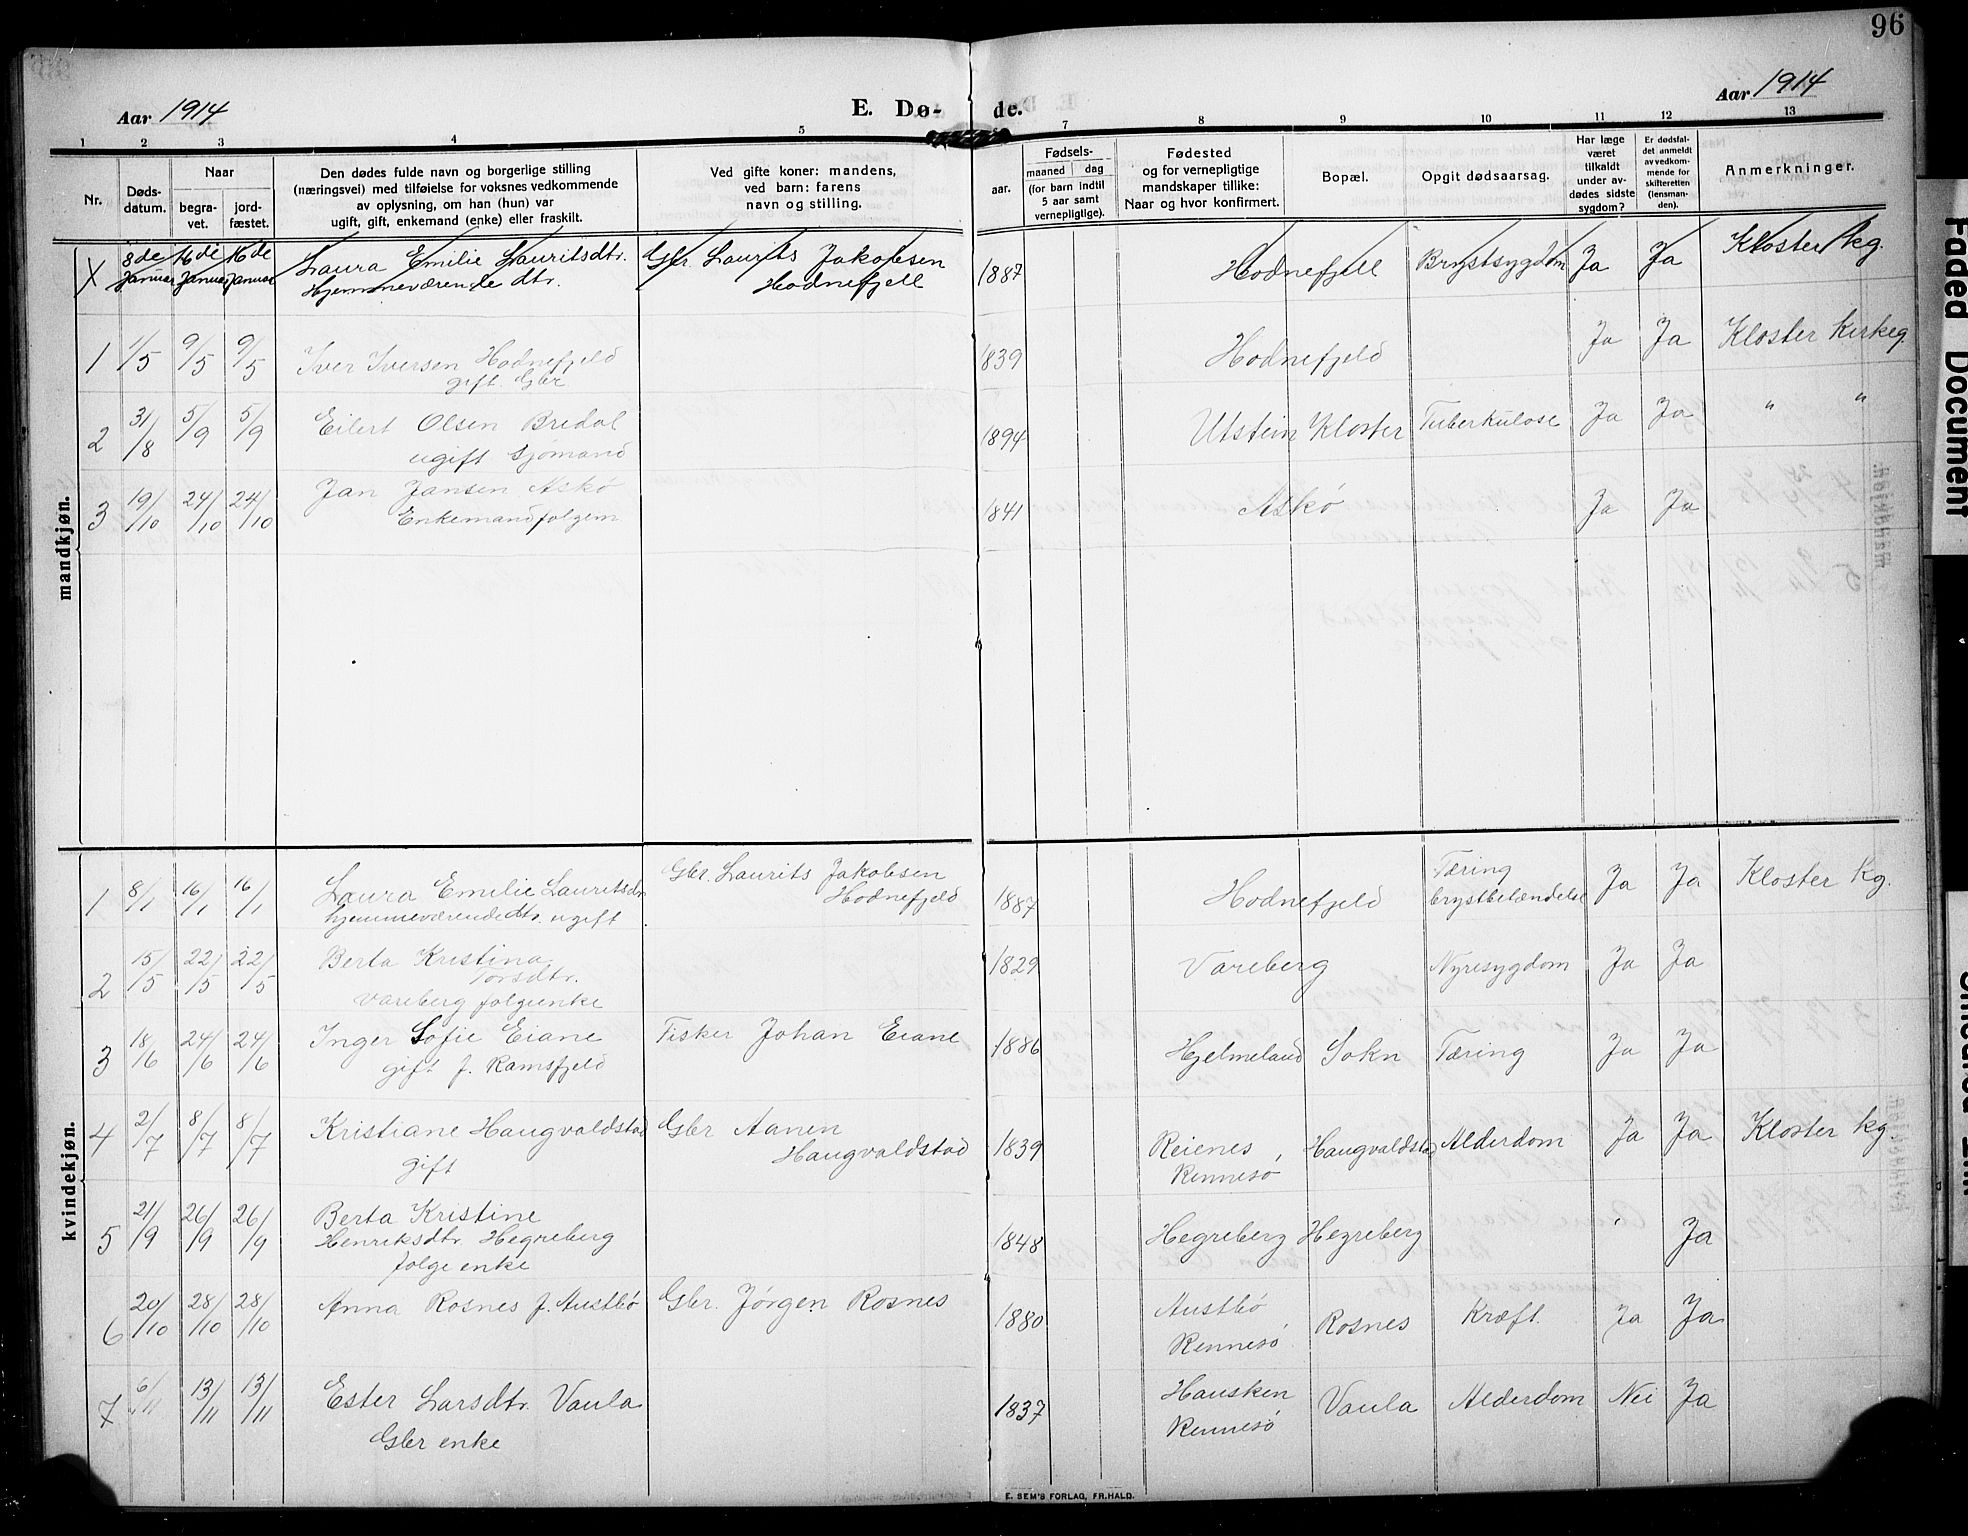 96
Aar 1914
E. Dø- de.
Aar 1914
1 2 3 4 5 7 8 9 10 11 12 13
Nr.
Døds-
datum.
Naar
begra-
vet.
jord-
fæstet.
Den dødes fulde navn og borgerlige stilling
(næringsvei) med tilføielse for voksnes vedkommende
av oplysning, om han (hun) var
ugift, gift, enkemand (enke) eller fraskilt.
Ved gifte koner: mandens,
ved barn: farens
navn og stilling.
aar.
Fødsels-
maaned dag
(for barn indtil
5 aar samt
vernepligtige).
Fødested
og for vernepligtige
mandskaper tillike:
Naar og hvor konfirmert.
Bopæl.
Opgit dødsaarsag.
Har læge
været
tilkaldt
under av-
dødes sidste
sygdom?
Er dødsfal-
det anmeldt
av vedkom-
mende for
skifteretten
(lensman-
den).
Anmerkninger.
mandkjøn.
X 8de 16de 16de Laura Emilie Lauritsdtr. Gbr. Laurits Jakobsen 1887 Hodnefjell Brystsygdom Ja Ja Kloster kg.
Januar Januar Januar Hjemmeværende dtr. Hodnefjell
1 1/5 9/5 9/5 Iver Iversen Hodnefjeld 1839 Hodnefjeld Ja Ja Kloster Kirkeg.
gift. Gbr
2 31/8 5/9 5/9 Eilert Olsen Bredal 1894 Utstein Kloster Tuberkulose Ja Ja " "
ugift Sjømand
3 19/10 24/10 24/10 Jan Jansen Askø 1841 Askø Ja Ja
Enkemand folgem
kvindekjøn.
1 8/1 16/1 16/1 Laura Emilie Lauritsdtr Gbr. Laurits Jakobsen 1887 Hodnefjeld Tæring Ja Ja Kloster Kg.
hjemmeværende dtr. ugift Hodnefjeld brystbetændelse
2 15/5 22/5 22/5 Berta Kristina 1829 Vareberg Nyresygdom Ja Ja
Torsdtr.
Vareberg folgeenke
3 18/6 24/6 24/6 Inger Sofie Eiane Fisker Johan Eiane 1886 Hjelmeland Sokn Tæring Ja Ja
gift f. Ramsfjeld
4 2/7 8/7 8/7 Kristiane Haugvaldstad Gbr Aanen 1839 Reienes Haugvaldstad Alderdom Ja Ja Kloster kg
gift Haugvaldstad Rennesø
5 21/9 26/9 26/9 Berta Kristine 1848 Hegreberg Hegreberg Ja
Henriksdtr. Hegreberg
folge enke
6 20/10 28/10 28/10 Anna Rosnes f. Austbø Gbr. Jørgen Rosnes 1880 Austbø Rosnes Kræft. Ja Ja
Rennesø
7 6/11 13/11 13/11 Ester Larsdtr. Vaula 1837 Hausken Vaula Alderdom Nei Ja
Gbr enke Rennesø
E. SEM'S FORLAG, FR.HALD.
Faded Document